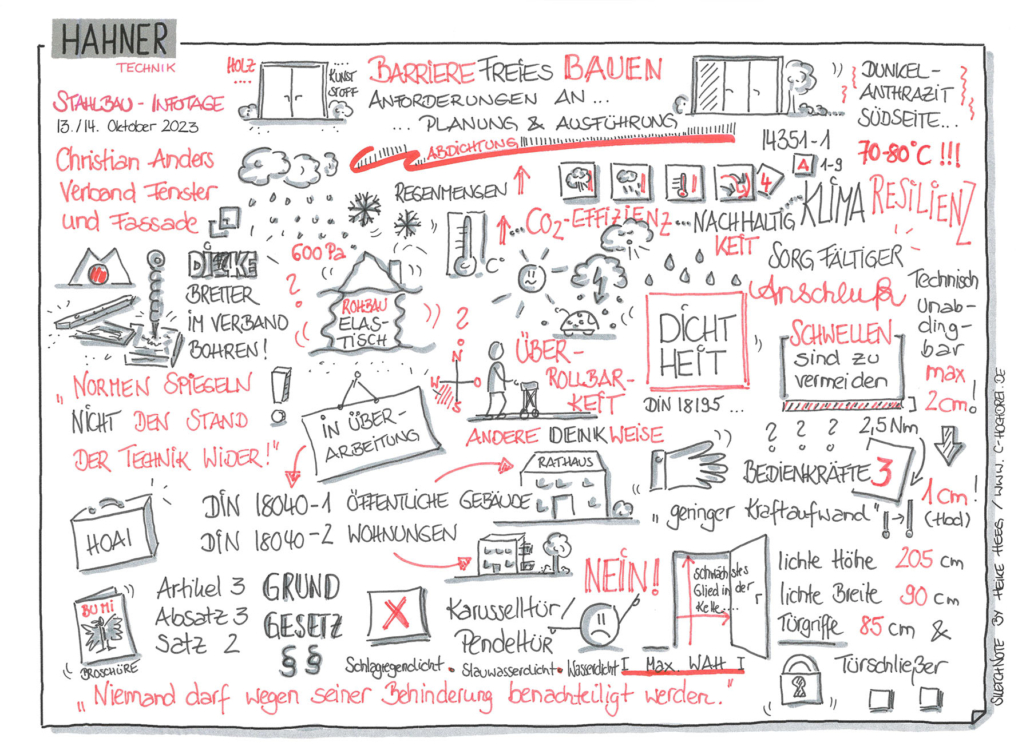 HAHNER
TECHNIK
STAHLBAU - INFOTAGE
13./14. Oktober 2023
Christian Anders
Verband Fenster
und Fassade
HOLZ
....
KUNST
STOFF
BARRIEREFREIES BAUEN
ANFORDERUNGEN AN...
... PLANUNG & AUSFÜHRUNG
ABDICHTUNG
DUNKEL-
ANTHRAZIT
SÜDSEITE...
70-80°C !!!
14351-1
A 1-9
4
REGENMENGEN
CO2-EFFIZIENZ ... NACHHALTIG
KEIT
KLIMA RESILIENZ
C°
600 Pa
?
DICKE
BRETTER
IM VERBAND
BOHREN!
ROHBAU
ELAS-
TISCH
?
N
W O
S
ÜBER-
ROLLBAR-
KEIT
DICHT
HEIT
DIN 18195...
SORGFÄLTIGER
Anschluß
SCHWELLEN
sind zu
vermeiden
Technisch
unab-
ding-
bar
max
2cm!
1cm!
(-Holl)
„NORMEN SPIEGELN
NICHT DEN STAND
DER TECHNIK WIDER!"
!
IN ÜBER-
ARBEITUNG
ANDERE DENKWEISE
? ? ?
2,5 Nm
BEDIENKRÄFTE 3
„geringer Kraftaufwand"
!→!
HOAI
DIN 18040-1 ÖFFENTLICHE GEBÄUDE
DIN 18040-2 WOHNUNGEN
RATHAUS
BUMI
BROSCHÜRE
Artikel 3
Absatz 3
Satz 2
GRUND
GESETZ
§ §
X
Karusselltür/
Pendeltür
NEIN!
schwächstes
Glied in der
Kette....
lichte Höhe 205 cm
lichte Breite 90 cm
Türgriffe 85 cm &
Türschließer
Schlagregendicht • Stauwasserdicht • Wasserdicht I Max. WAH I
„Niemand darf wegen seiner Behinderung benachteiligt werden."
SKETCHNOTE BY HEIKE HEEG / WWW.C-HOCHDREI.DE